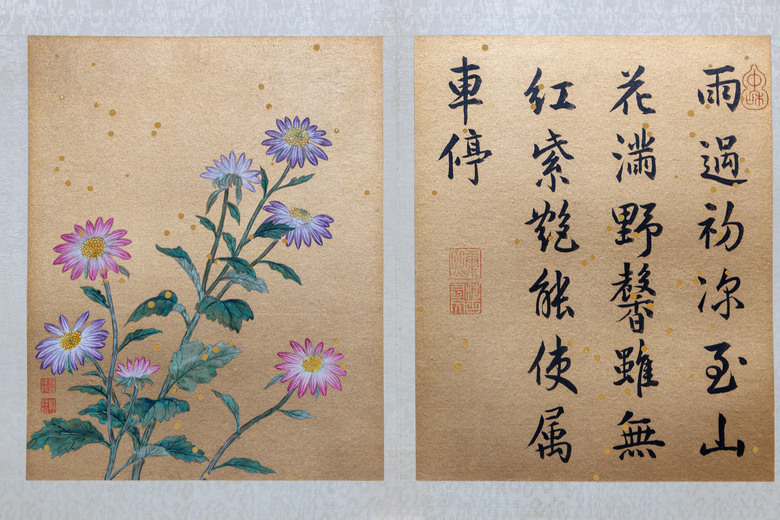 雨過初凉至山
花滿野馨雖無
紅紫艷能使属
車停